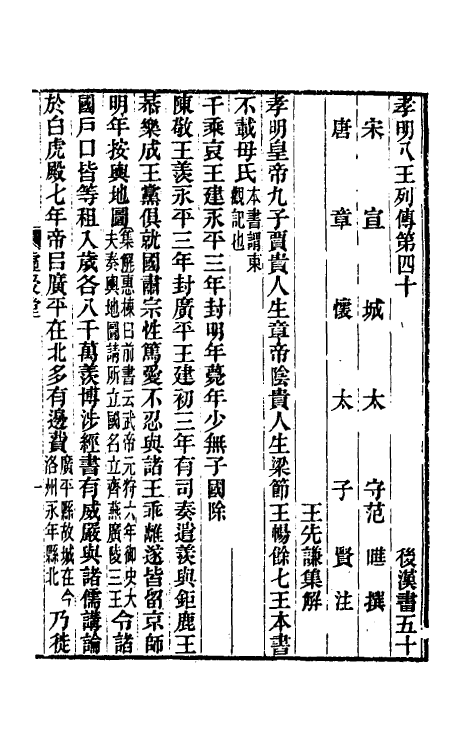 孝明八王列傳第四十　後漢書五十
宋宣城太守范曄撰
唐章懷太子賢注
王先謙集解
孝明皇帝九子賈貴人生章帝陰貴人生梁節王暢餘七王本書
不載母氏本書謂東觀記也
千乘哀王建永平三年封明年薨年少無子國除
陳敬王羨永平三年封廣平王建初三年有司奏遣羨與鉅鹿王
恭樂成王黨俱就國肅宗性篤愛不忍與諸王乖離遂皆留京師
明年按輿地圖集解惠棟曰前書云武帝元狩六年御史大夫奏輿地圖請所立國名立齊燕廣陵三王令諸
國戶口皆等租入歲各八千萬羨博涉經書有威嚴與諸儒講論
於白虎殿七年帝㠯廣平在北多有邊費廣平縣故城在今洺州永年縣北乃徙
一